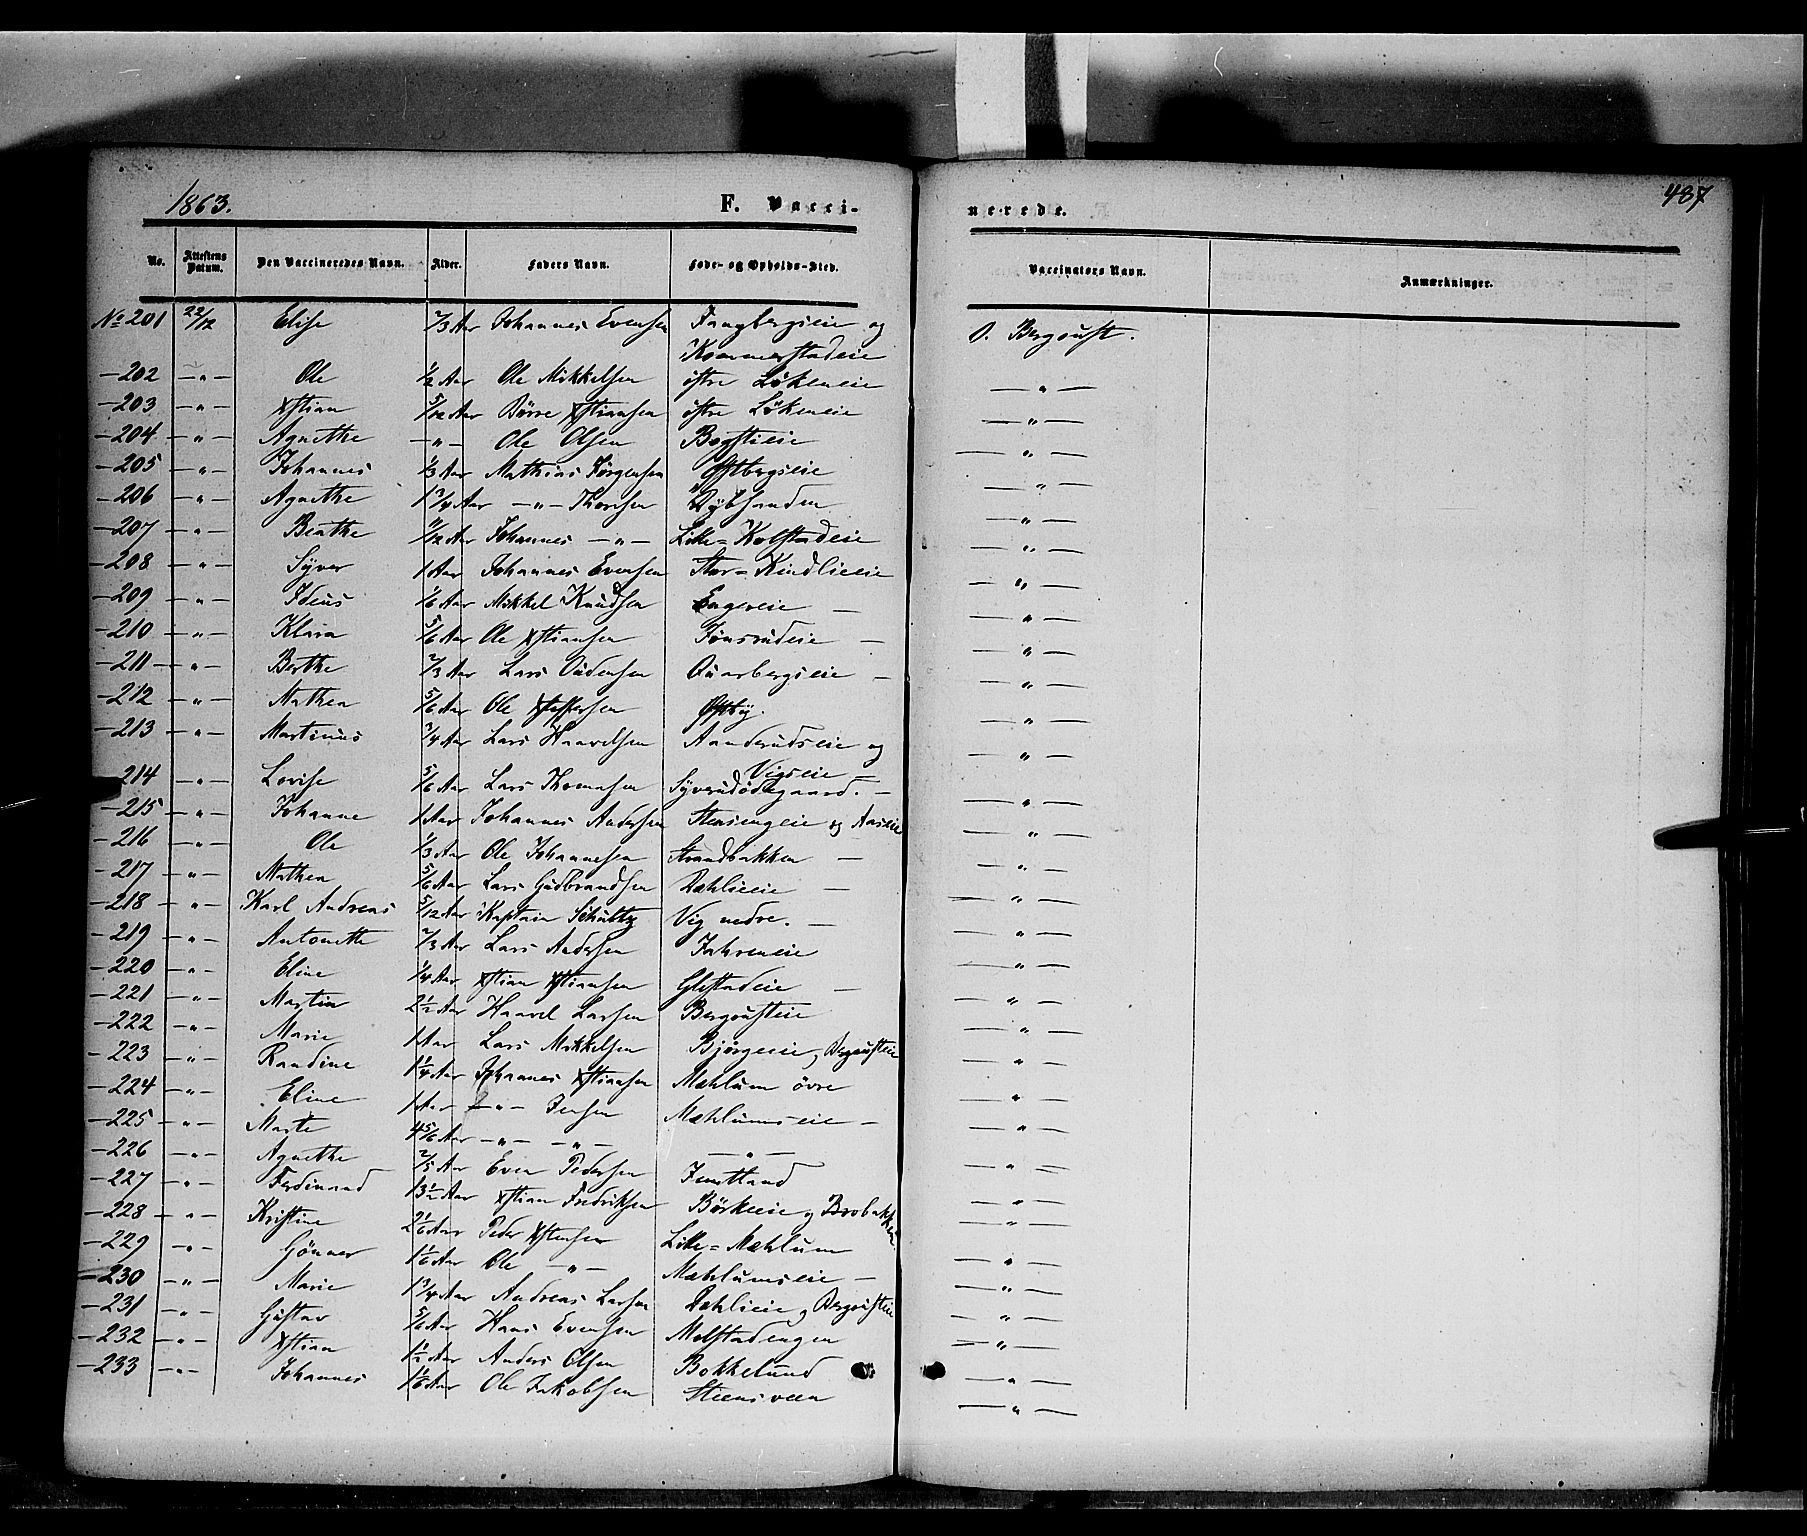 1863. F. Vacci- nerede. 487
No. Attestens Datum. Den Vaccineredes Navn. Alder. Faders Navn. Føde- og Opholds-Sted. Vaccinators Navn. Anmærkninger.
No 201 22/12 Elise 2/3 Aar Johannes Evensen Fangbergseie og O. Bergoust.
Kommerstadeie
-202 -"- Ole 1/2 Aar Ole Mikkelsen östre Lökeneie -"-
-203 -"- Xstian 5/12 Aar Börre Xstiansen östre Lökeneie -"-
-204 -"- Agnethe -"- Ole Olsen Bogstieie -"-
-205 -"- Johannes 1/3 Aar Mathias Jörgensen Ostbergseie -"-
-206 -"- Agnethe 1 3/4 Aar -"- Thorsen Dybsanden -"-
-207 -"- Beathe 11/12 Aar Johannes -"- Lille=Kolstadeie -"-
-208 -"- Syver 1 Aar Johannes Evensen Stor=Kindlieeie -"-
-209 -"- Ideus 1/6 Aar Mikkel Knudsen Engeeie - -"-
-210 -"- Klara 5/6 Aar Ole Xstiansen Jönsrudeie - -"-
-211 -"- Berthe 2/3 Aar Lars Audensen Quarbergseie - -"-
-212 -"- Mathea 5/6 Aar Ole Xstoffersen Ostby. -"-
-213 -"- Martinus 3/4 Aar Lars Haavelsen Aanderudseie og -"-
Vigseie -
-214 -"- Lovise 5/6 Aar Lars Thomasen Syverudödegaard. - -"-
-215 -"- Johanne 1 Aar Johannes Andersen Stensengeie og Aaseie -"-
-216 -"- Ole 1/3 Aar Ole Johannesen Strandbakken - -"-
-217 -"- Mathea 5/6 Aar Lars Gudbrandsen Dæhlieeie - -"-
-218 -"- Karl Andreas 5/12 Aar Kaptain Schultz Vig nedre. - -"-
-219 -"- Antonette 2/3 Aar Lars Andersen Jahreneie -"-
-220 -"- Eline 1/4 Aar Xstian Xstiansen Glestadeie - -"-
-221 -"- Martin 2 1/2 Aar Haavel Larsen Bergousteie -"-
-222 -"- Marie 1 Aar Lars Mikkelsen Bjørgeeie, Bergousteie -"-
-223 -"- Randine 1 1/4 Aar Johannes Xstiansen Mæhlum övre -"-
-224 -"- Eline 1 Aar -"- Jensen Mæhlumseie - -"-
-225 -"- Marte 4 5/6 Aar -"- -"- -"- -"-
-226 -"- Agnethe 2/5 Aar Even Pedersen Jemtland -"-
-227 -"- Ferdinand 13 1/2 Aar Xstian Fredriksen Börkeeie og Brobakken. -"-
-228 -"- Kristine 2 1/6 Aar Peder Xstensen Lille=Mæhlum -"-
-229 -"- Gönner 1 1/6 Aar Ole -"- Mæhlumseie - -"-
-230 -"- Marie 1 3/4 Aar Andreas Larsen Dæhlieie, Bergousteie -"-
-231 -"- Gustav 5/6 Aar Hans Evensen Molstadengen -"-
-232 -"- Xstian 1 1/2 Aar Anders Olsen Bokkelund -"-
-233 -"- Johannes 1 1/6 Aar Ole Jakobsen Steensveen -"-